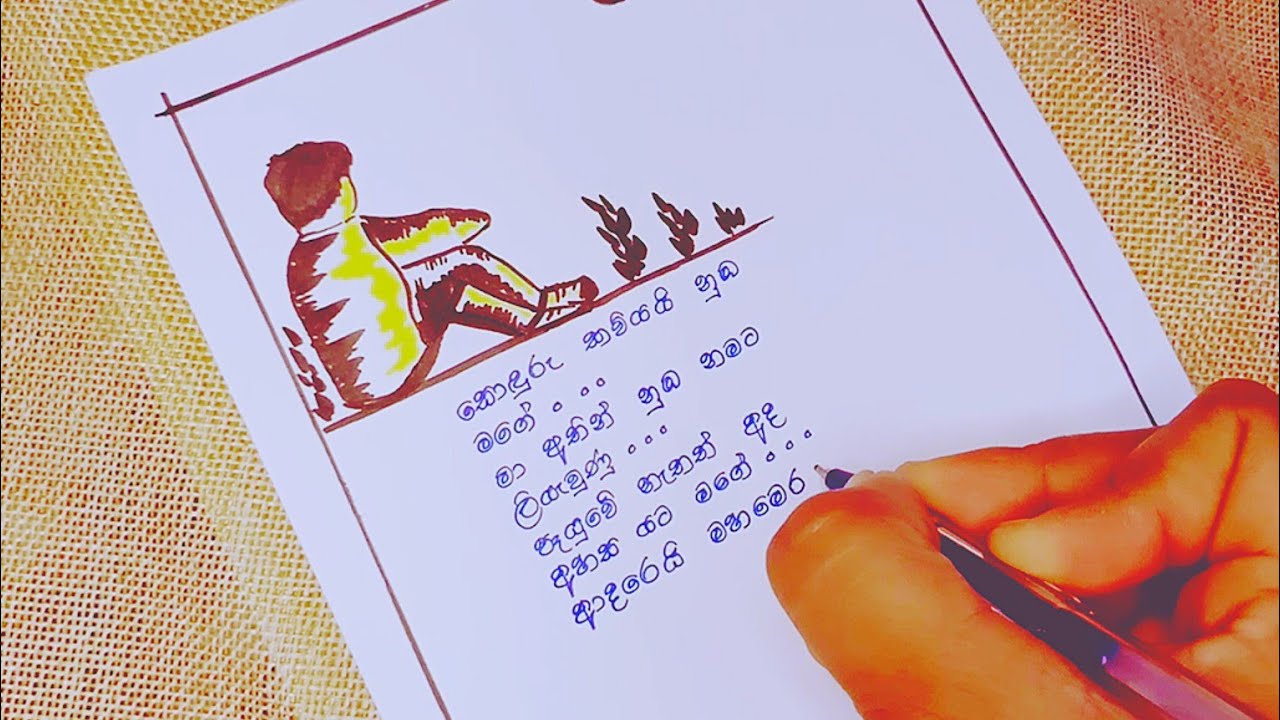 කොඳුරු කවියයි නුඹ
මගේ...
මා අතින් නුඹ නමට
ලියැවුණු...
පෑයුවේ නැතත් අද
අහස යට මගේ...
ආදරෙයි මහමෙර